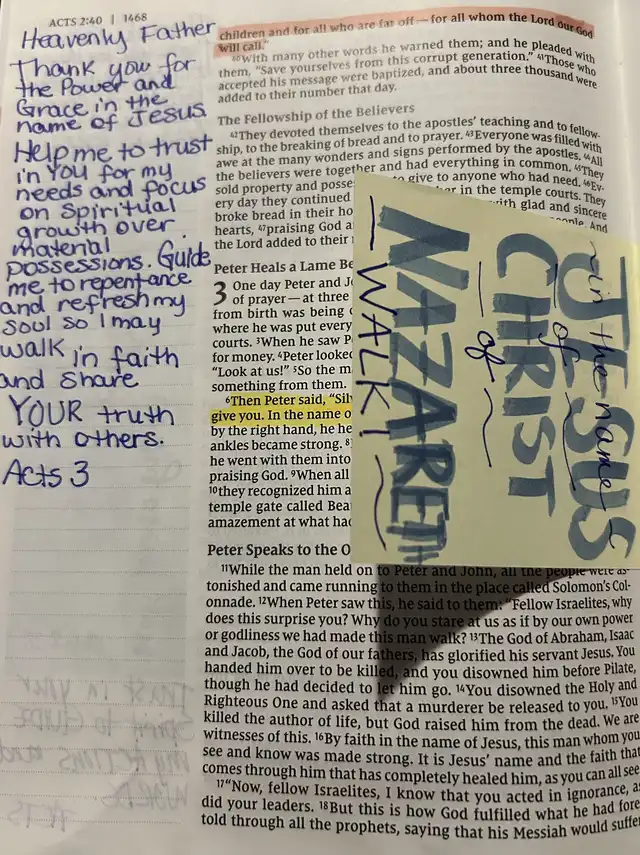 ACTS 2:40 | 1468
Heavenly Father
Thank you for
the Power and
Grace in the
name of Jesus
Help me to trust
in You for my
needs and focus
on Spiritual
growth over
material
possessions. Guide
me to repentance
and refresh my
soul so I may
walk in faith
and share
YOUR truth
with others.
Acts 3
children and for all who are far off—for all whom the Lord our God
will call."
40With many other words he warned them; and he pleaded with
them, "Save yourselves from this corrupt generation." 41Those who
accepted his message were baptized, and about three thousand were
added to their number that day.
The Fellowship of the Believers
42They devoted themselves to the apostles' teaching and to fellow-
ship, to the breaking of bread and to prayer. 43Everyone was filled with
awe at the many wonders and signs performed by the apostles. 44All
the believers were together and had everything in common. 45They
sold property and posse to give to anyone who had need. 46Ev-
ery day they continued in the temple courts. They
broke bread in their ho with glad and sincere
hearts, 47praising God a people. And
the Lord added to their
Peter Heals a Lame Be
3 One day Peter and J
of prayer—at three
from birth was being
where he was put every
courts. 3When he saw P
for money. 4Peter looked
"Look at us!" 5So the m
something from them.
6Then Peter said, "Sil
give you. In the name o
by the right hand, he he
ankles became strong. 8
he went with them into
praising God. 9When all
10they recognized him a
temple gate called Bea
amazement at what had
~in the name
of
JESUS
CHRIST
of
NAZARETH
WALK!
Peter Speaks to the O
11While the man held on to Peter and John, all the people were as-
tonished and came running to them in the place called Solomon's Col-
onnade. 12When Peter saw this, he said to them: "Fellow Israelites, why
does this surprise you? Why do you stare at us as if by our own power
or godliness we had made this man walk? 13The God of Abraham, Isaac
and Jacob, the God of our fathers, has glorified his servant Jesus. You
handed him over to be killed, and you disowned him before Pilate,
though he had decided to let him go. 14You disowned the Holy and
Righteous One and asked that a murderer be released to you. 15You
killed the author of life, but God raised him from the dead. We are
witnesses of this. 16By faith in the name of Jesus, this man whom you
see and know was made strong. It is Jesus' name and the faith that
comes through him that has completely healed him, as you can all see.
17"Now, fellow Israelites, I know that you acted in ignorance, as
did your leaders. 18But this is how God fulfilled what he had fore
told through all the prophets, saying that his Messiah would suffer